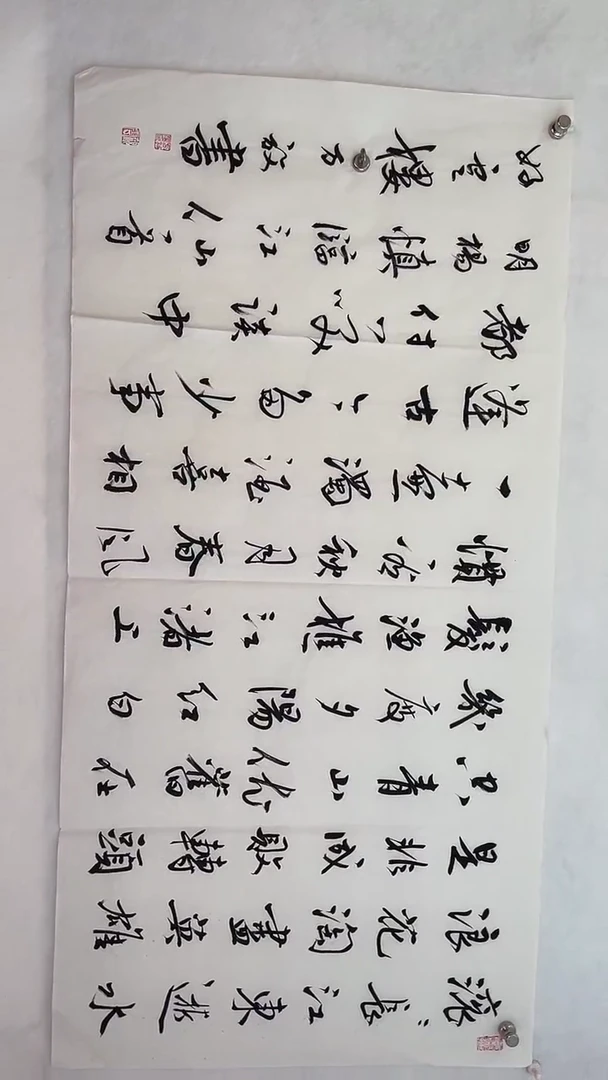 滾〻長江東逝水
浪花淘盡英雄
是非成敗轉頭
空青山依舊在
幾度夕陽紅白
髮漁樵江渚上
慣看秋月春風
一壺濁酒喜相
逢古今多少事
都付一笑談中
明楊慎臨江仙一首
樓書